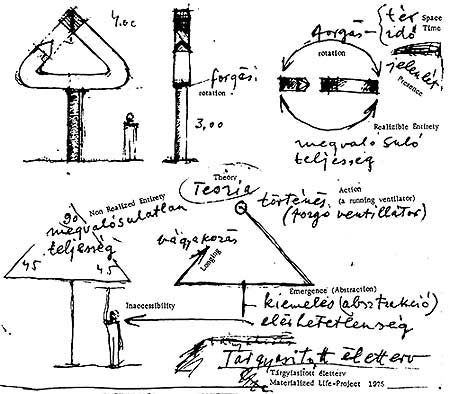 4.00
forgási
rotation
3,00
forgás
rotation
tér
idő
Space
Time
jelenlét
Presence
Realizible Entirety
megvalósuló
teljesség
Theory
Teória
Non Realized Entirety
90
megvalósulatlan
teljesség
45
45
vágyakozás
Longing
történés
Action
(a running ventilator)
(forgó ventillátor)
Emergence (Abstraction)
kiemelés (absztrakció)
Inaccessibility
elérhetetlenség
Tárgyasított életterv
Tárgyiasított életterv
Materialized Life-Project 1975